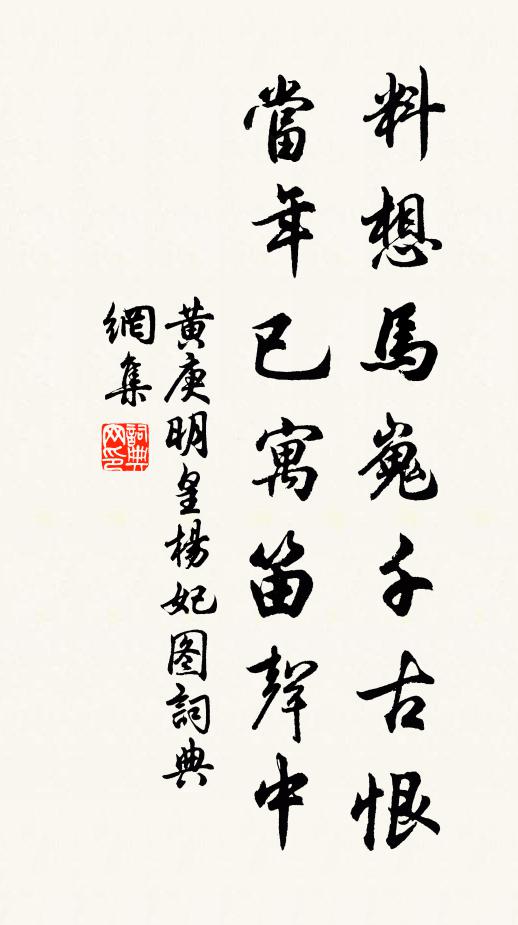 料想馬嵬千古恨
當年已寓笛聲中
黃庚明皇楊妃图詞典
網集
詞典
网印